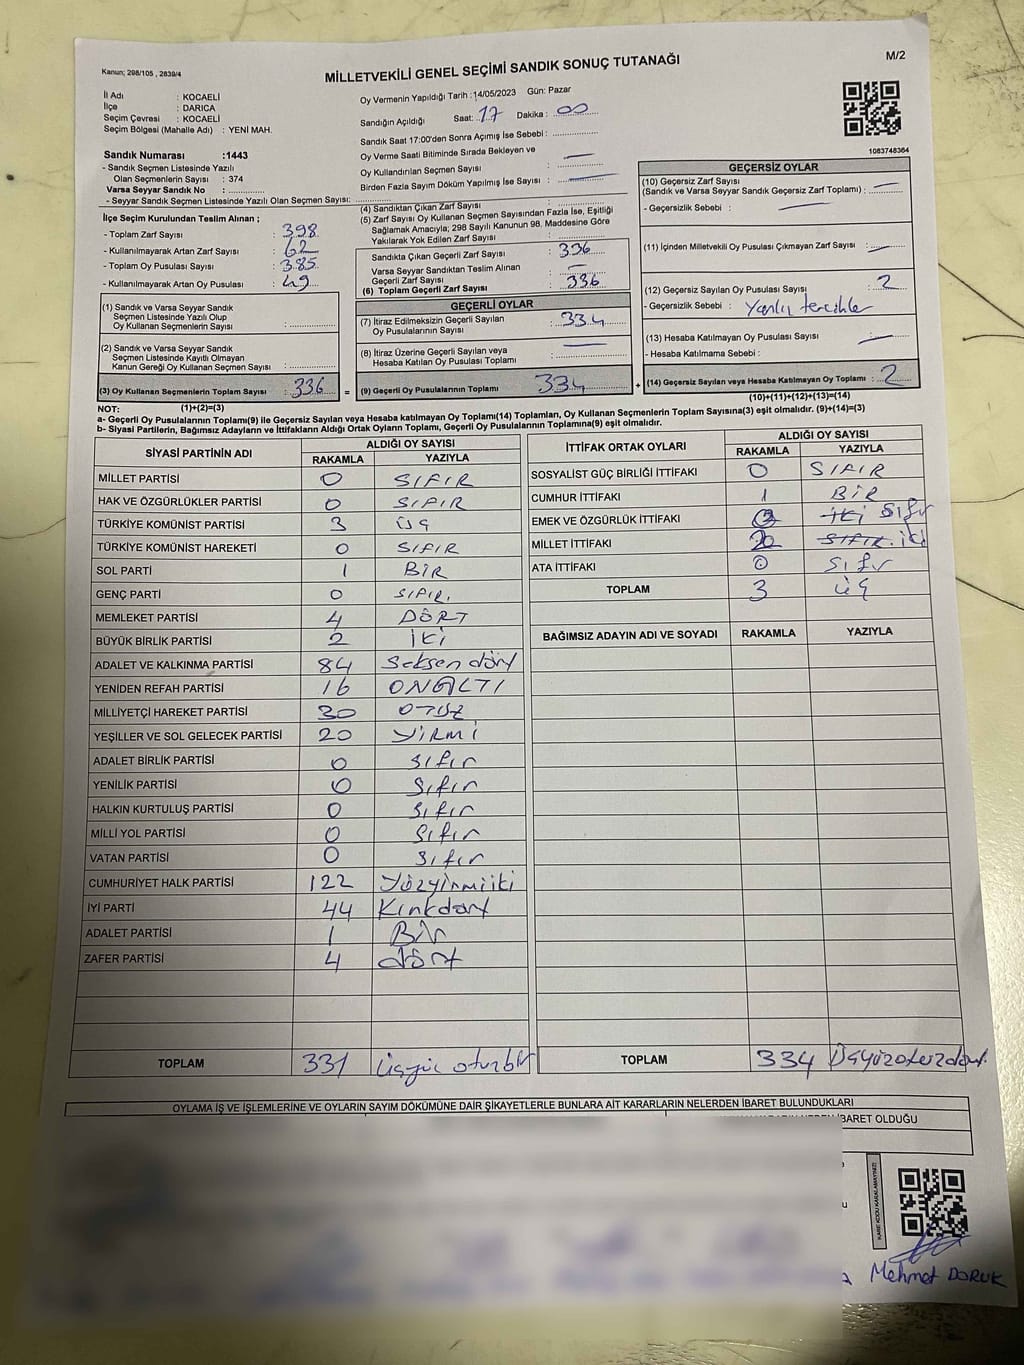 Kanun; 298/105 , 2839/4
MİLLETVEKİLİ GENEL SEÇİMİ SANDIK SONUÇ TUTANAĞI
M/2
İl Adı : KOCAELİ
İlçe : DARICA
Seçim Çevresi : KOCAELİ
Seçim Bölgesi (Mahalle Adı) : YENİ MAH.
Sandık Numarası :1443
- Sandık Seçmen Listesinde Yazılı
Olan Seçmenlerin Sayısı : 374
Varsa Seyyar Sandık No :
- Seyyar Sandık Seçmen Listesinde Yazılı Olan Seçmen Sayısı:
Oy Vermenin Yapıldığı Tarih :14/05/2023 Gün: Pazar
Sandığın Açıldığı Saat: 17 Dakika : 00
Sandık Saat 17:00'den Sonra Açımış İse Sebebi :
Oy Verme Saati Bitiminde Sırada Bekleyen ve
Oy Kullandırılan Seçmen Sayısı : —
Birden Fazla Sayım Döküm Yapılmış İse Sayısı : —
1083748364
İlçe Seçim Kurulundan Teslim Alınan ;
- Toplam Zarf Sayısı : 398
- Kullanılmayarak Artan Zarf Sayısı : 62
- Toplam Oy Pusulası Sayısı : 385
- Kullanılmayarak Artan Oy Pusulası : 49
(1) Sandık ve Varsa Seyyar Sandık
Seçmen Listesinde Yazılı Olup
Oy Kullanan Seçmenlerin Sayısı :
(2) Sandık ve Varsa Seyyar Sandık
Seçmen Listesinde Kayıtlı Olmayan
Kanun Gereği Oy Kullanan Seçmen Sayısı :
(3) Oy Kullanan Seçmenlerin Toplam Sayısı : 336 =
(1)+(2)=(3)
(4) Sandıktan Çıkan Zarf Sayısı :
(5) Zarf Sayısı Oy Kullanan Seçmen Sayısından Fazla İse, Eşitliği
Sağlamak Amacıyla; 298 Sayılı Kanunun 98. Maddesine Göre
Yakılarak Yok Edilen Zarf Sayısı :
Sandıkta Çıkan Geçerli Zarf Sayısı : 336
Varsa Seyyar Sandıktan Teslim Alınan
Geçerli Zarf Sayısı : —
(6) Toplam Geçerli Zarf Sayısı : 336
GEÇERLİ OYLAR
(7) İtiraz Edilmeksizin Geçerli Sayılan
Oy Pusulalarının Sayısı : 334
(8) İtiraz Üzerine Geçerli Sayılan veya
Hesaba Katılan Oy Pusulası Toplamı : —
(9) Geçerli Oy Pusulalarının Toplamı : 334 +
GEÇERSİZ OYLAR
(10) Geçersiz Zarf Sayısı
(Sandık ve Varsa Seyyar Sandık Geçersiz Zarf Toplamı) : —
- Geçersizlik Sebebi : —
(11) İçinden Milletvekili Oy Pusulası Çıkmayan Zarf Sayısı : —
(12) Geçersiz Sayılan Oy Pusulası Sayısı : 2
- Geçersizlik Sebebi : Yanlış tercihler
(13) Hesaba Katılmayan Oy Pusulası Sayısı : —
- Hesaba Katılmama Sebebi :
(14) Geçersiz Sayılan veya Hesaba Katılmayan Oy Toplamı : 2
(10)+(11)+(12)+(13)=(14)
NOT:
a- Geçerli Oy Pusulalarının Toplamı(9) ile Geçersiz Sayılan veya Hesaba katılmayan Oy Toplamı(14) Toplamları, Oy Kullanan Seçmenlerin Toplam Sayısına(3) eşit olmalıdır. (9)+(14)=(3)
b- Siyasi Partilerin, Bağımsız Adayların ve İttifakların Aldığı Ortak Oyların Toplamı, Geçerli Oy Pusulalarının Toplamına(9) eşit olmalıdır.
SİYASİ PARTİNİN ADI
ALDIĞI OY SAYISI
RAKAMLA YAZIYLA
MİLLET PARTİSİ 0 SIFIR
HAK VE ÖZGÜRLÜKLER PARTİSİ 0 SIFIR
TÜRKİYE KOMÜNİST PARTİSİ 3 ÜÇ
TÜRKİYE KOMÜNİST HAREKETİ 0 SIFIR
SOL PARTİ 1 BİR
GENÇ PARTİ 0 SIFIR.
MEMLEKET PARTİSİ 4 DÖRT
BÜYÜK BİRLİK PARTİSİ 2 İKİ
ADALET VE KALKINMA PARTİSİ 84 Seksen dört
YENİDEN REFAH PARTİSİ 16 ONALTI
MİLLİYETÇİ HAREKET PARTİSİ 30 OTUZ
YEŞİLLER VE SOL GELECEK PARTİSİ 20 YİRMİ
ADALET BİRLİK PARTİSİ 0 sıfır
YENİLİK PARTİSİ 0 sıfır
HALKIN KURTULUŞ PARTİSİ 0 sıfır
MİLLİ YOL PARTİSİ 0 sıfır
VATAN PARTİSİ 0 sıfır
CUMHURİYET HALK PARTİSİ 122 Yüzyirmiiki
İYİ PARTİ 44 Kırkdört
ADALET PARTİSİ 1 Bir
ZAFER PARTİSİ 4 dört
TOPLAM 331 Üçyüz oturbir
İTTİFAK ORTAK OYLARI
ALDIĞI OY SAYISI
RAKAMLA YAZIYLA
SOSYALİST GÜÇ BİRLİĞİ İTTİFAKI 0 SIFIR
CUMHUR İTTİFAKI 1 BİR
EMEK VE ÖZGÜRLÜK İTTİFAKI İKİ Sıfır
MİLLET İTTİFAKI 2 SIFIR. iki
ATA İTTİFAKI 0 sıfır
TOPLAM 3 üç
BAĞIMSIZ ADAYIN ADI VE SOYADI RAKAMLA YAZIYLA
TOPLAM 334 Üçyüzotuzdört
OYLAMA İŞ VE İŞLEMLERİNE VE OYLARIN SAYIM DÖKÜMÜNE DAİR ŞİKAYETLERLE BUNLARA AİT KARARLARIN NELERDEN İBARET BULUNDUKLARI
BARET OLDUĞU
KARE KODU KARALAMAYINIZ!
Mehmet DORUK